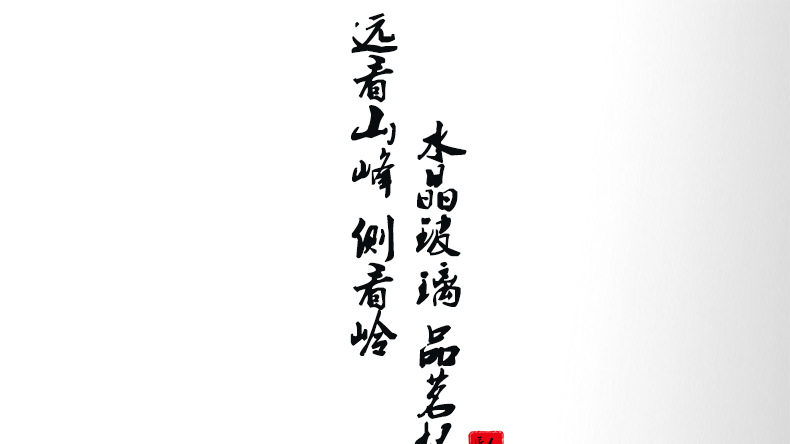 远看山峰 侧看岭
水晶玻璃 品茗